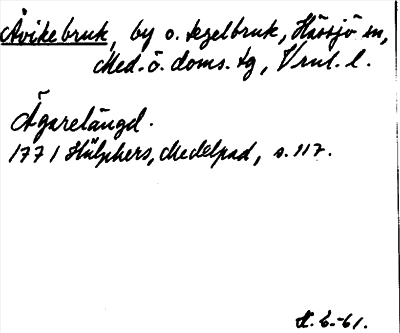 Åvikebruk, by o. tegelbruk, Hässjö sn,
Med. ö. doms. tg, Vrnl. l.
Ägarelängd.
1771 Hülphers, Medelpad, s. 117.
H. G. -61.